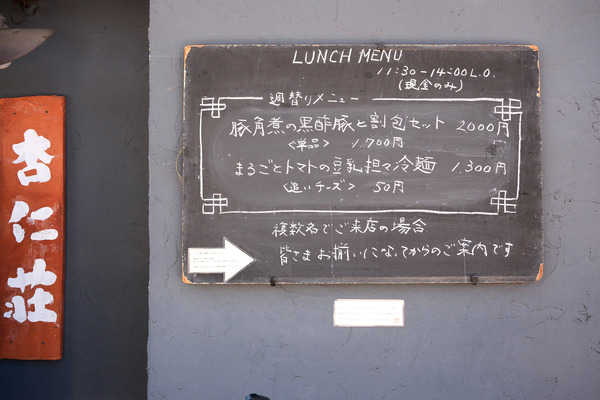 杏仁荘
LUNCH MENU
11:30-14:00 L.O.
(現金のみ)
週替りメニュー
豚角煮の黒酢豚と割包セット 2000円
<単品> 1.700円
まるごとトマトの豆乳担々冷麺 1.300円
<追いチーズ> 50円
複数名でご来店の場合
皆さまお揃いになってからのご案内です